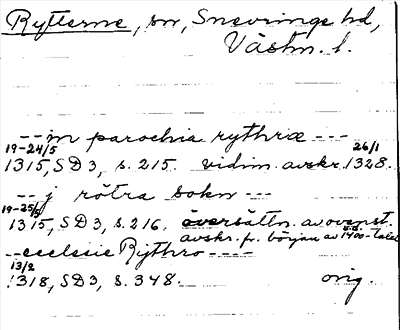 Rytterne, sn, Snevringe hd,
Västm. l.
-- in parochia rythræ ---
19-24/5 26/1
1315, SD 3, s. 215. vidim. avskr. 1328.
-- j rötra sokn ---
19-25/5
1315, SD 3, s. 216. översättn. av ovenst.
avskr. fr. början av 1400-talet
-- ecclesie Rythro ----
13/2
1318, SD 3, s. 348. orig.